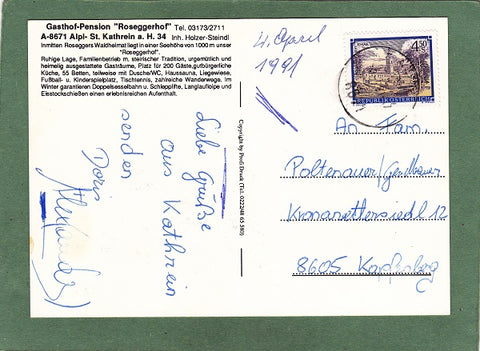 Gasthof-Pension "Roseggerhof" Tel. 03173/2711
A-8671 Alpl- St. Kathrein a. H. 34 Inh. Holzer-Steindl
Inmitten Roseggers Waldheimat liegt in einer Seehöhe von 1000 m unser
"Roseggerhof".
Ruhige Lage, Familienbetrieb m. steirischer Tradition, urgemütlich und
heimelig ausgestattete Gasträume, Platz für 200 Gäste, gutbürgerliche
Küche, 55 Betten, teilweise mit Dusche/WC, Haussauna, Liegewiese,
Fußball- u. Kinderspielplatz, Tischtennis, zahlreiche Wanderwege. Im
Winter garantieren Doppelsesselbahn u. Schlepplifte, Langlaufloipe und
Eisstockschießen einen erlebnisreichen Aufenthalt.
4. April
1991
Liebe Grüße
aus Kathrein
senden
Doris
Copyright by Profi-Druck (Tel. 022248 65 580)
4.50
REPUBLIK ÖSTERREICH
An Fam.
Poltenauer/
12
8605 Kapfenberg